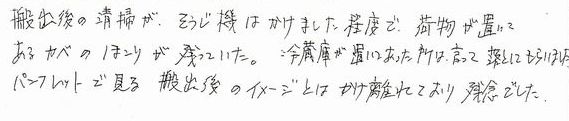 搬出後の清掃が、そうじ機はかけました程度で、荷物が置いて
あるカベのほこりが残っていた。冷蔵庫が置いてあった所は、言って落としてもらいました
パンフレットで見る 搬出後のイメージとはかけ離れており残念でした。